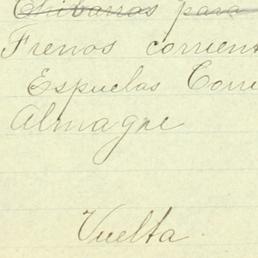 Chibarros para
Frenos corrient
Espuelas Corri
Almagre
Vuelta.